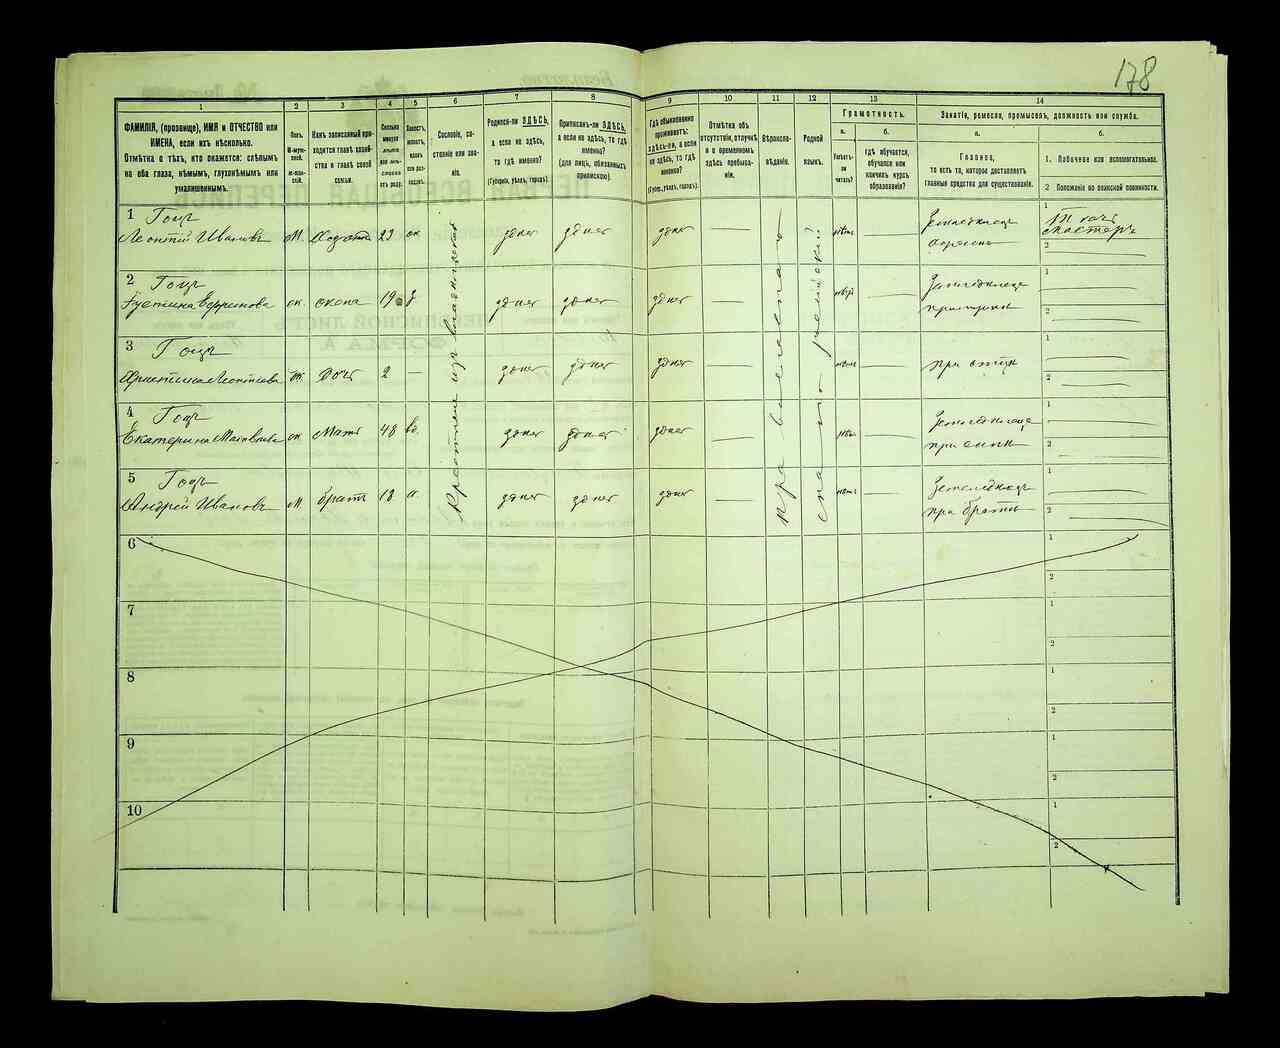 178
1
2
3
4
5
6
7
8
9
10
11
12
13
14
ФАМИЛІЯ, (прозвище), ИМЯ и ОТЧЕСТВО или
ИМЕНА, если ихъ нѣсколько.
Отмѣтка о тѣхъ, кто окажется: слѣпымъ
на оба глаза, нѣмымъ, глухонѣмымъ или
умалишоннымъ.
Полъ.
М-муж-
ской.
Ж-жен-
скій.
Какъ записанный при-
ходится главѣ хозяй-
ства и главѣ своей
семьи.
Сколько
минуло
лѣтъ
отъ роду.
Холостъ,
женатъ,
вдовъ
или раз-
веденъ.
Сословіе, со-
стояніе или зва-
ніе.
Родился-ли ЗДѢСЬ,
а если не здѣсь,
то гдѣ именно?
(Губернія, уѣздъ, городъ).
Приписанъ-ли ЗДѢСЬ,
а если не здѣсь, то гдѣ
именно?
(для лицъ, обязанныхъ
припискою).
Гдѣ обыкновенно
проживаетъ:
здѣсь-ли, а если
не здѣсь, то гдѣ
именно?
(Губер., уѣздъ, городъ).
Отмѣтка объ
отсутствіи, отлучкѣ
и о временномъ
здѣсь пребыва-
ніи.
Вѣроиспо-
вѣданіе.
Родной
языкъ.
Грамотность.
а.
б.
Умѣетъ-
ли
читать?
гдѣ обучается,
обучался или
кончилъ курсъ
образованія?
Занятіе, ремесло, промыселъ, должность или служба.
а.
б.
Главное,
то есть то, которое доставляетъ
главныя средства для существованія.
1. Побочное или вспомогательное.
2 Положеніе по воинской повинности.
1 Гоцъ
Леонтій Ивановъ М. Хозяинъ 23 ж здѣсь здѣсь здѣсь — нѣтъ — Земледѣлецъ
1 Ткачъ
мастеръ
2
2 Гоцъ
Ефимова ж. жена 19 з здѣсь здѣсь здѣсь — —
при мужѣ
1
2
3 Гоцъ
Христина Леонтіева ж дочь 2 — здѣсь здѣсь здѣсь — нѣтъ — при отцѣ
1
2
4 Гоцъ
Екатерина Матвѣева ж мать 48 вд. здѣсь здѣсь здѣсь — нѣтъ —
при сынѣ
1
2
5 Гоцъ
Андрей Ивановъ М братъ 18 х здѣсь здѣсь здѣсь — нѣтъ — Земледѣлецъ
при братѣ
1
2
Крестьяне изъ владѣльческихъ
православная
6
1
2
7
1
2
8
1
2
9
1
2
10
1
2